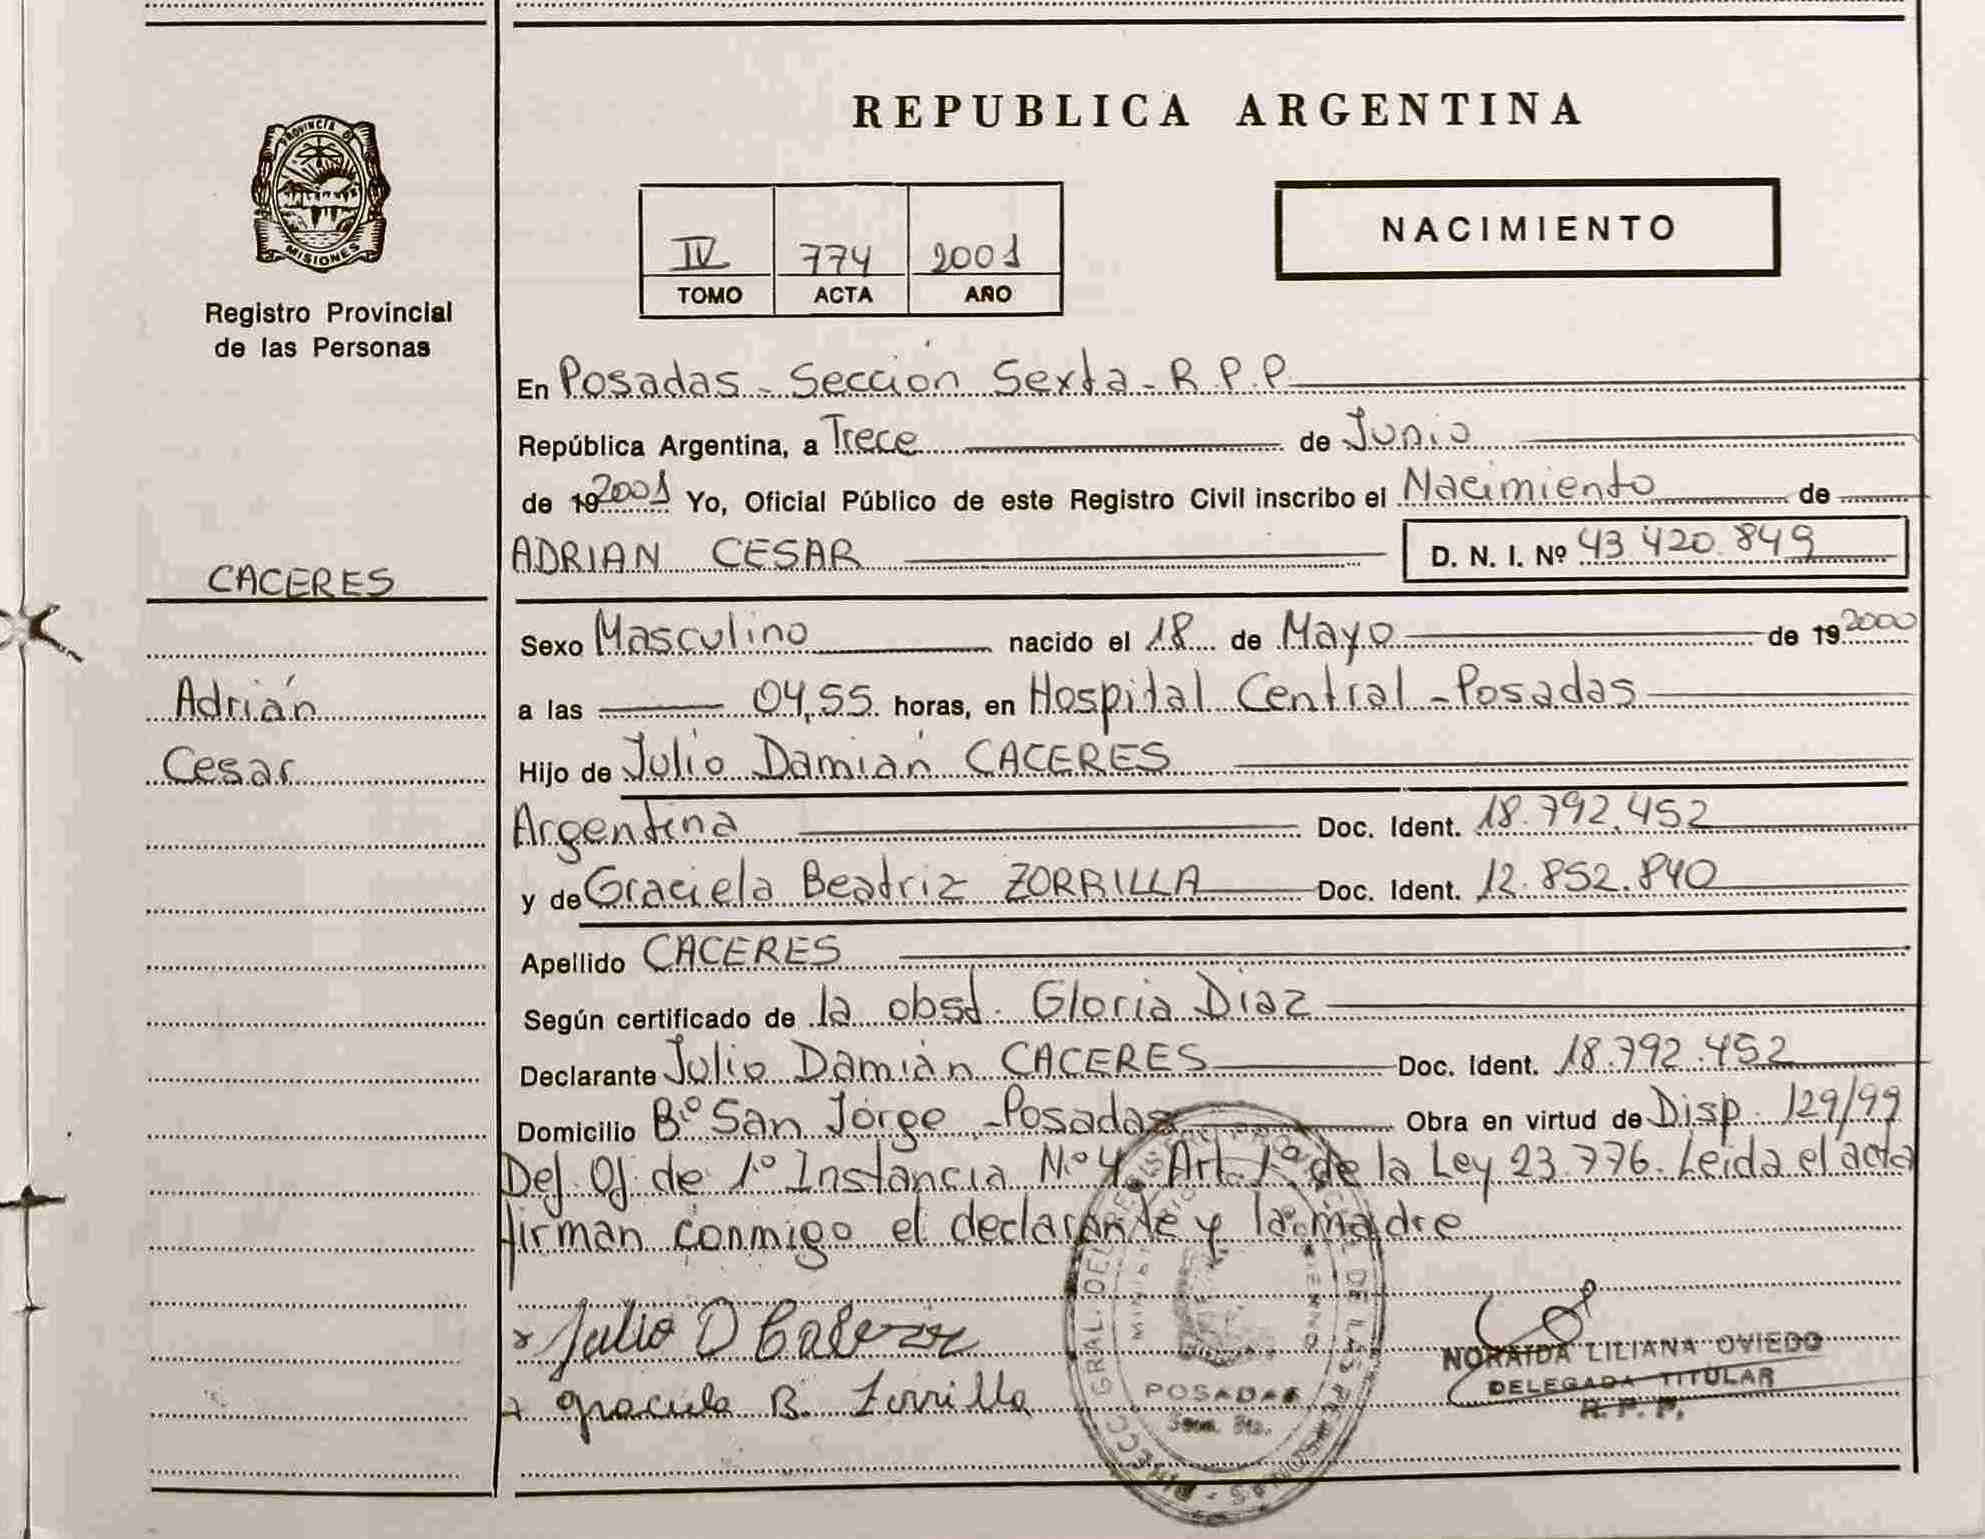 REPUBLICA ARGENTINA
PROVINCIA DE
MISIONES
Registro Provincial
de las Personas
IV 774 2001
TOMO ACTA AÑO
NACIMIENTO
En Posadas - Sección Sexta - R.P.P
República Argentina, a Trece de Junio
de 19 2001 Yo, Oficial Público de este Registro Civil inscribo el Nacimiento de
ADRIAN CESAR D. N. I. Nº 43.420.849
CACERES
Adrián
Cesar
Sexo Masculino nacido el 18 de Mayo de 19 2000
a las 04,55 horas, en Hospital Central - Posadas
Hijo de Julio Damián CACERES
Argentina Doc. Ident. 18.792.452
y de Graciela Beatriz ZORRILLA Doc. Ident. 12.852.840
Apellido CACERES
Según certificado de la obst. Gloria Diaz
Declarante Julio Damián CACERES Doc. Ident. 18.792.452
Domicilio Bº San Jorge - Posadas Obra en virtud de Disp. 129/99
Def. Of. de 1º Instancia Nº 4 Art. 1º de la Ley 23.776. Leida el acta
firman conmigo el declarante y la madre
Julio D
graciela B. Zorrilla
POSADAS
NORAIDA LILIANA OVIEDO
DELEGADA TITULAR
R. P. P.